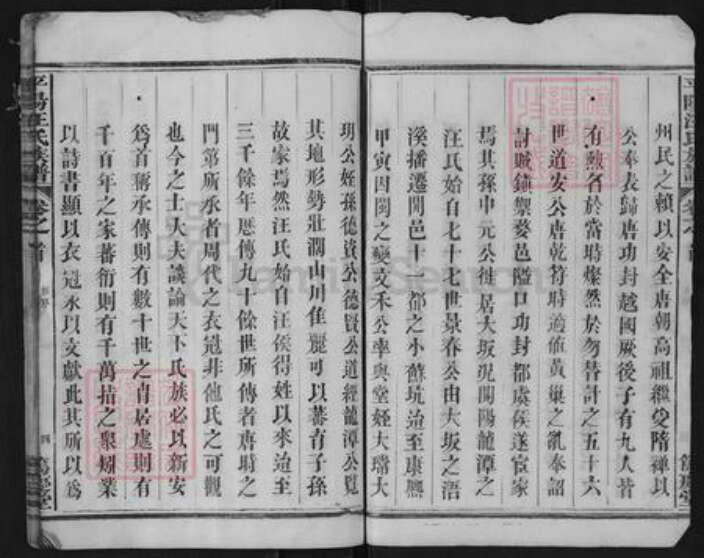 州民之賴以安全唐朝高祖繼受隋禪以
公奉表歸唐功封越國厥後子有九人皆
有勲名於當時燦然於勿替計之五十六
世道安公唐乾符時適值黃巢之亂奉詔
討賊鎮禦婺邑隘口功封都虞侯遂宦家
焉其孫中元公徙居大坂況開陽龍潭之
汪氏始自七十七世景春公由大坂之浯
溪播遷開邑十一都之小蘇坑迨至康熙
甲寅因閩之變支禾公率與堂姪大璫大
玥公姪孫德資公德賢公道經龍潭公覧
其地形勢壯濶山川隹麗可以蕃育子孫
故家焉然汪氏始自汪侯得姓以來迨至
三千餘年歷傳九十餘世所傳者唐時之
門第所承者周代之衣冠非他氏之可觀
也今之士大夫談論天下氏族必以新安
為首稱承傳則有數十世之 居處則有
千百年之家蕃衍則有千萬指之聚矧業
以詩書顯以衣冠承以文獻此其所以為
平陽汪氏族譜
卷之首
四